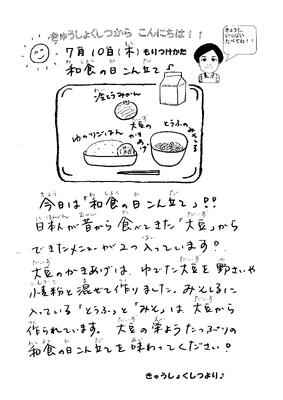 きゅうしょくしつから こんにちは!!
きょうも
いっぱい
たべてね!!
7月10日(木) もりつけかた
和食の日こん立て♪
冷とうみかん
大豆の
かきあげ
とうふのみそしる
ゆかりごはん
今日は「和食の日こん立て」!!
日本人が昔から食べてきた「大豆」から
できたメニューが2つ入っています!
大豆のかきあげは、ゆでた大豆を野さいや
小麦粉と混ぜて作りました。みそしるに
入っている「とうふ」と「みそ」は大豆から
作られています。大豆の栄ようたっぷりの
和食の日こん立てを味わってください!
きゅうしょくしつより♪